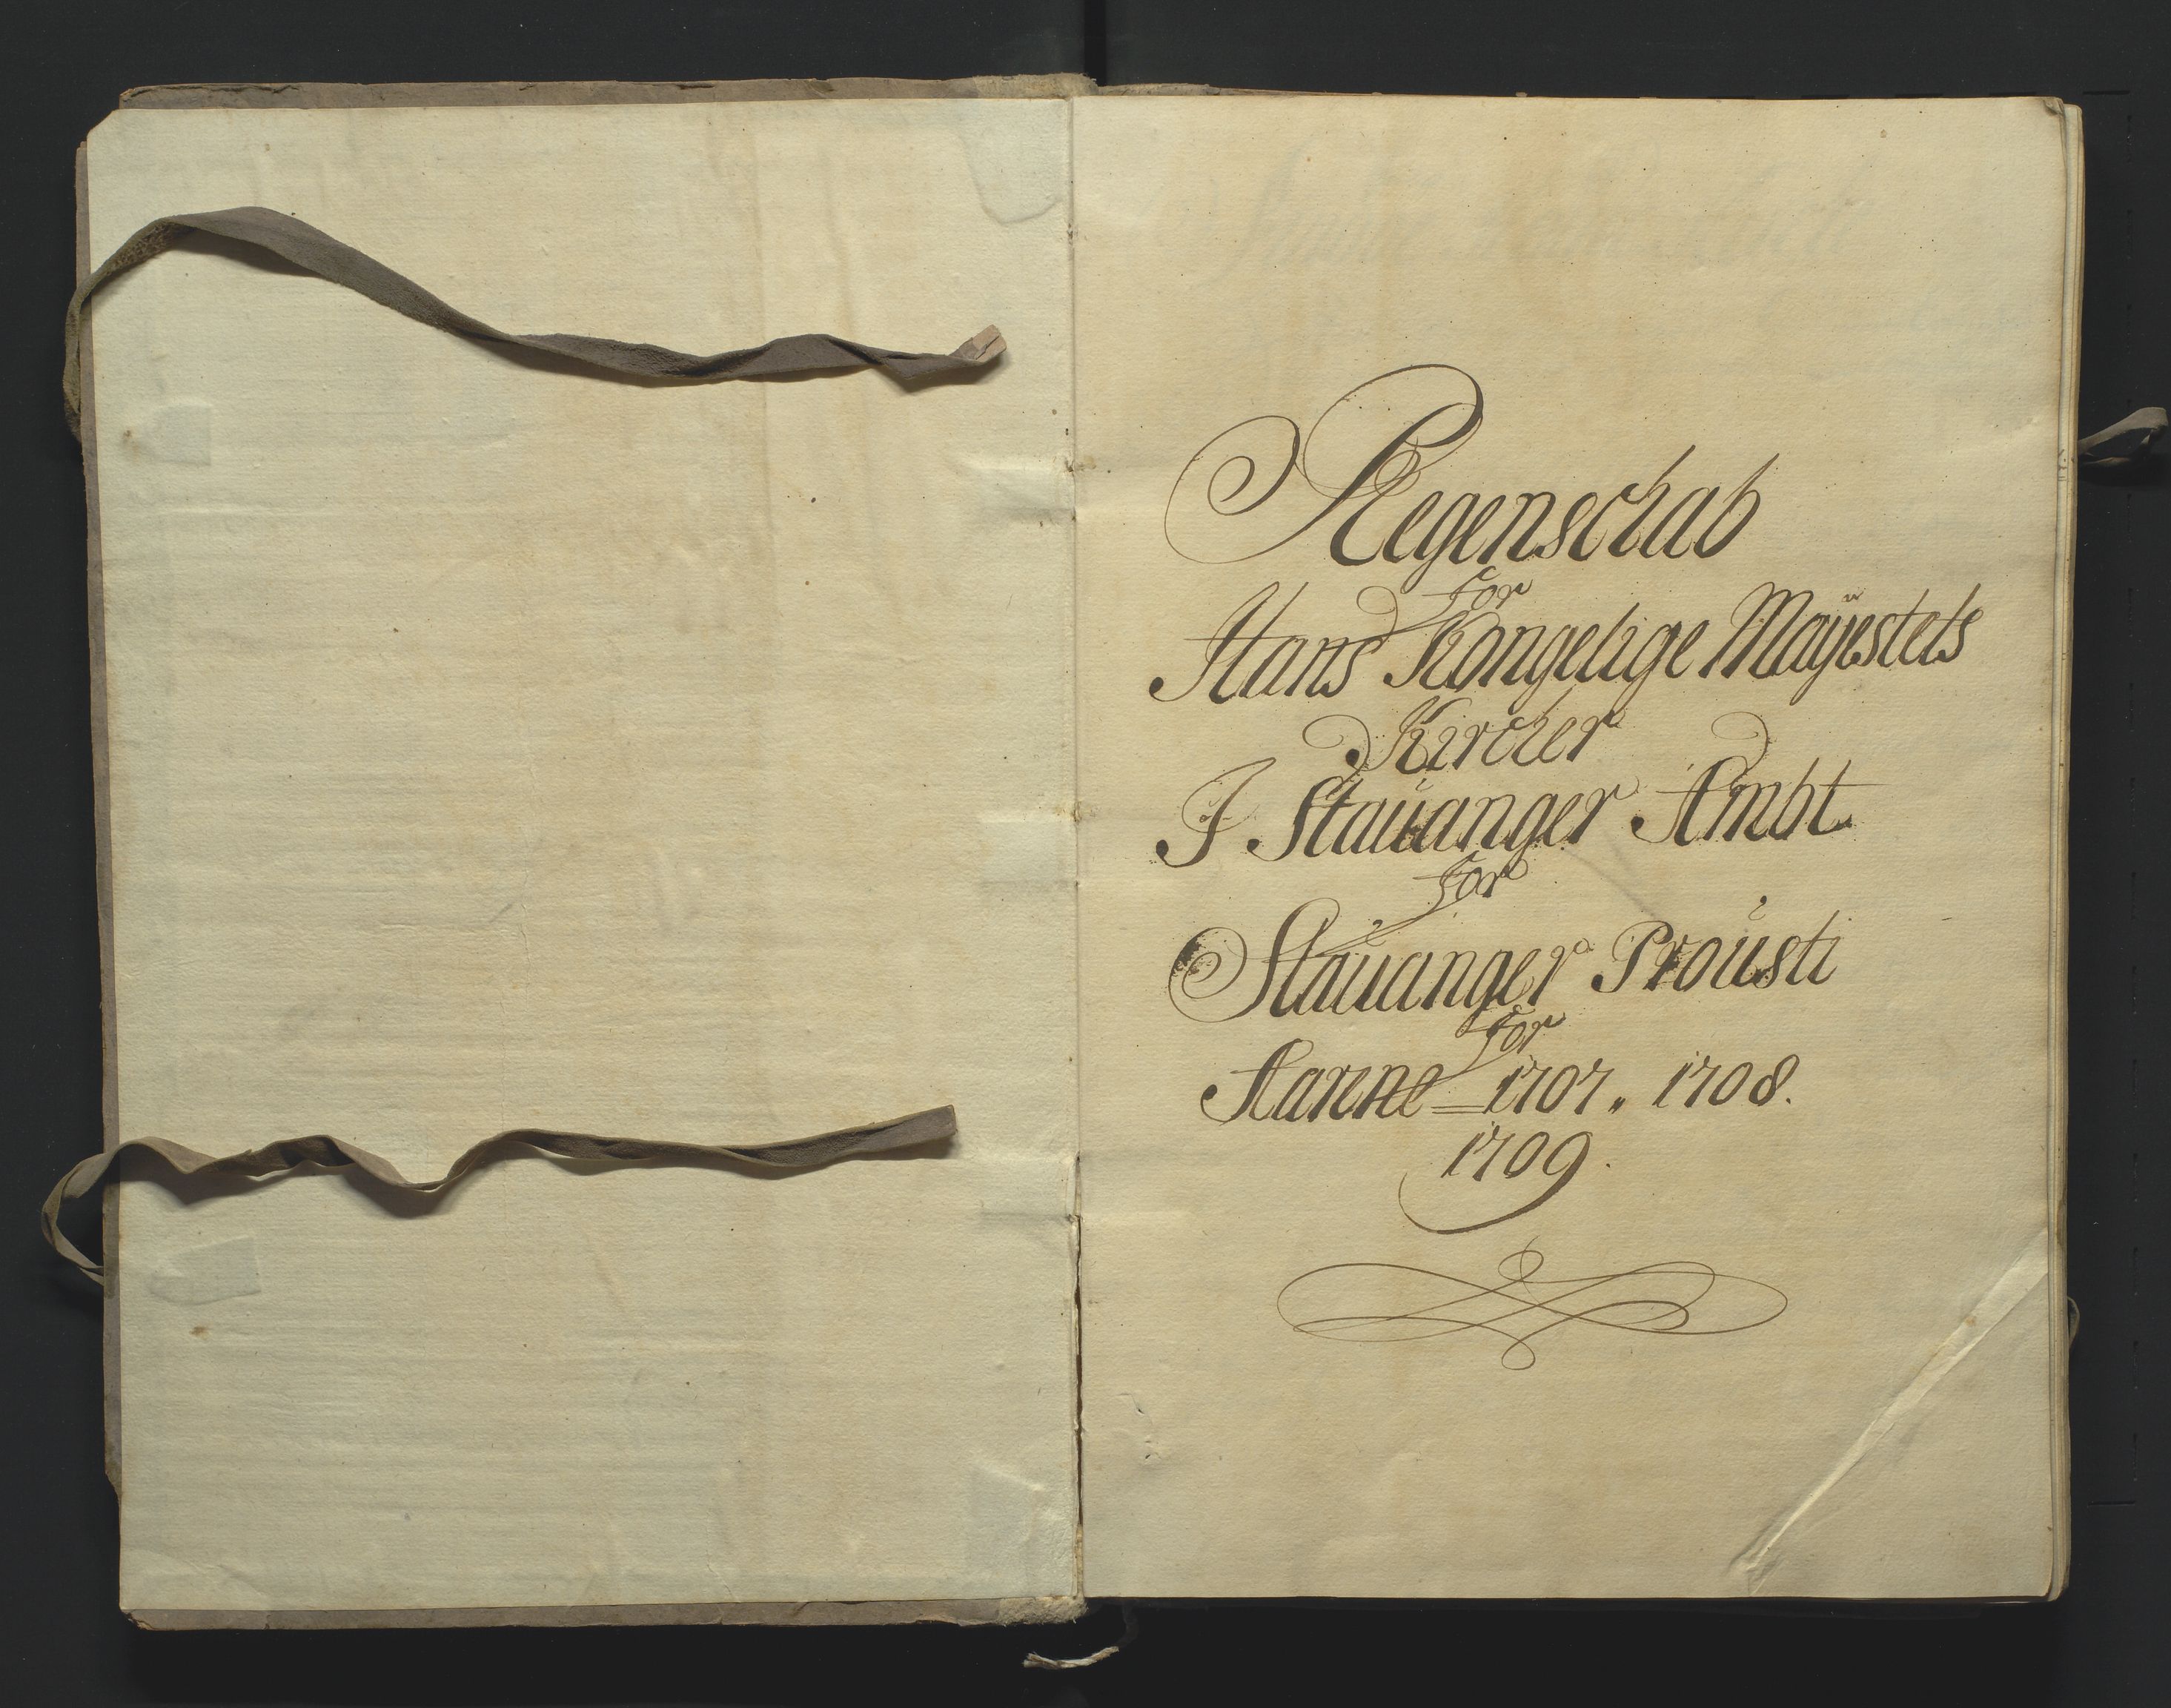 Regenschab
for
Hans Kongelige Mayestets
Kircher
I Stauanger Ambt
for
Stauanger Prousti
for
Aarene 1707, 1708.
1709.